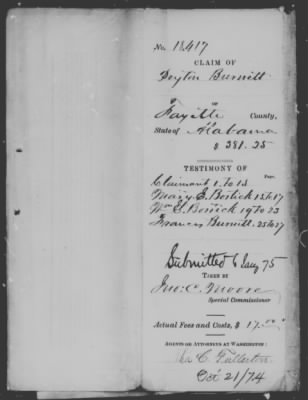 No. 18417
CLAIM OF
Peyton Burnitt
OF
Fayette County,
State of Alabama
$ 381.25
TESTIMONY OF
Page.
Claimant 1 to 13
Mary E. Bostick 15 to 17
Wm E. Bostick 19 to 23
Frances Burnitt. 25 to 27
Submitted 6 Jany 75
TAKEN BY
Jno. C. Moore
Special Commissioner
Actual Fees and Costs, $ 17.00
AGENTS OR ATTORNEYS AT WASHINGTON:
C Fullerton
Oct 21/74